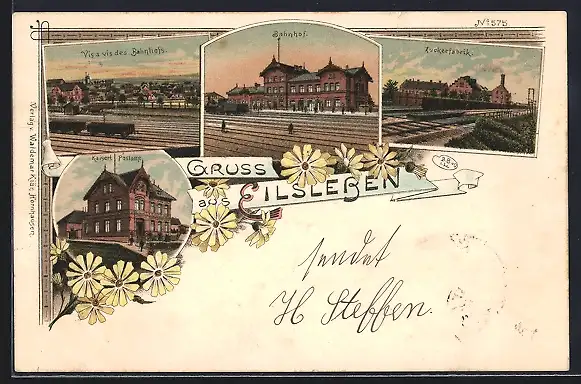 No 575
Vis a vis des Bahnhofs.
Bahnhof.
Zuckerfabrik.
Kaiserl. Postamt
GRUSS
aus EILSLEBEN
sendet
H Steffen.
Verlag v. Waldemar
Hornhausen.